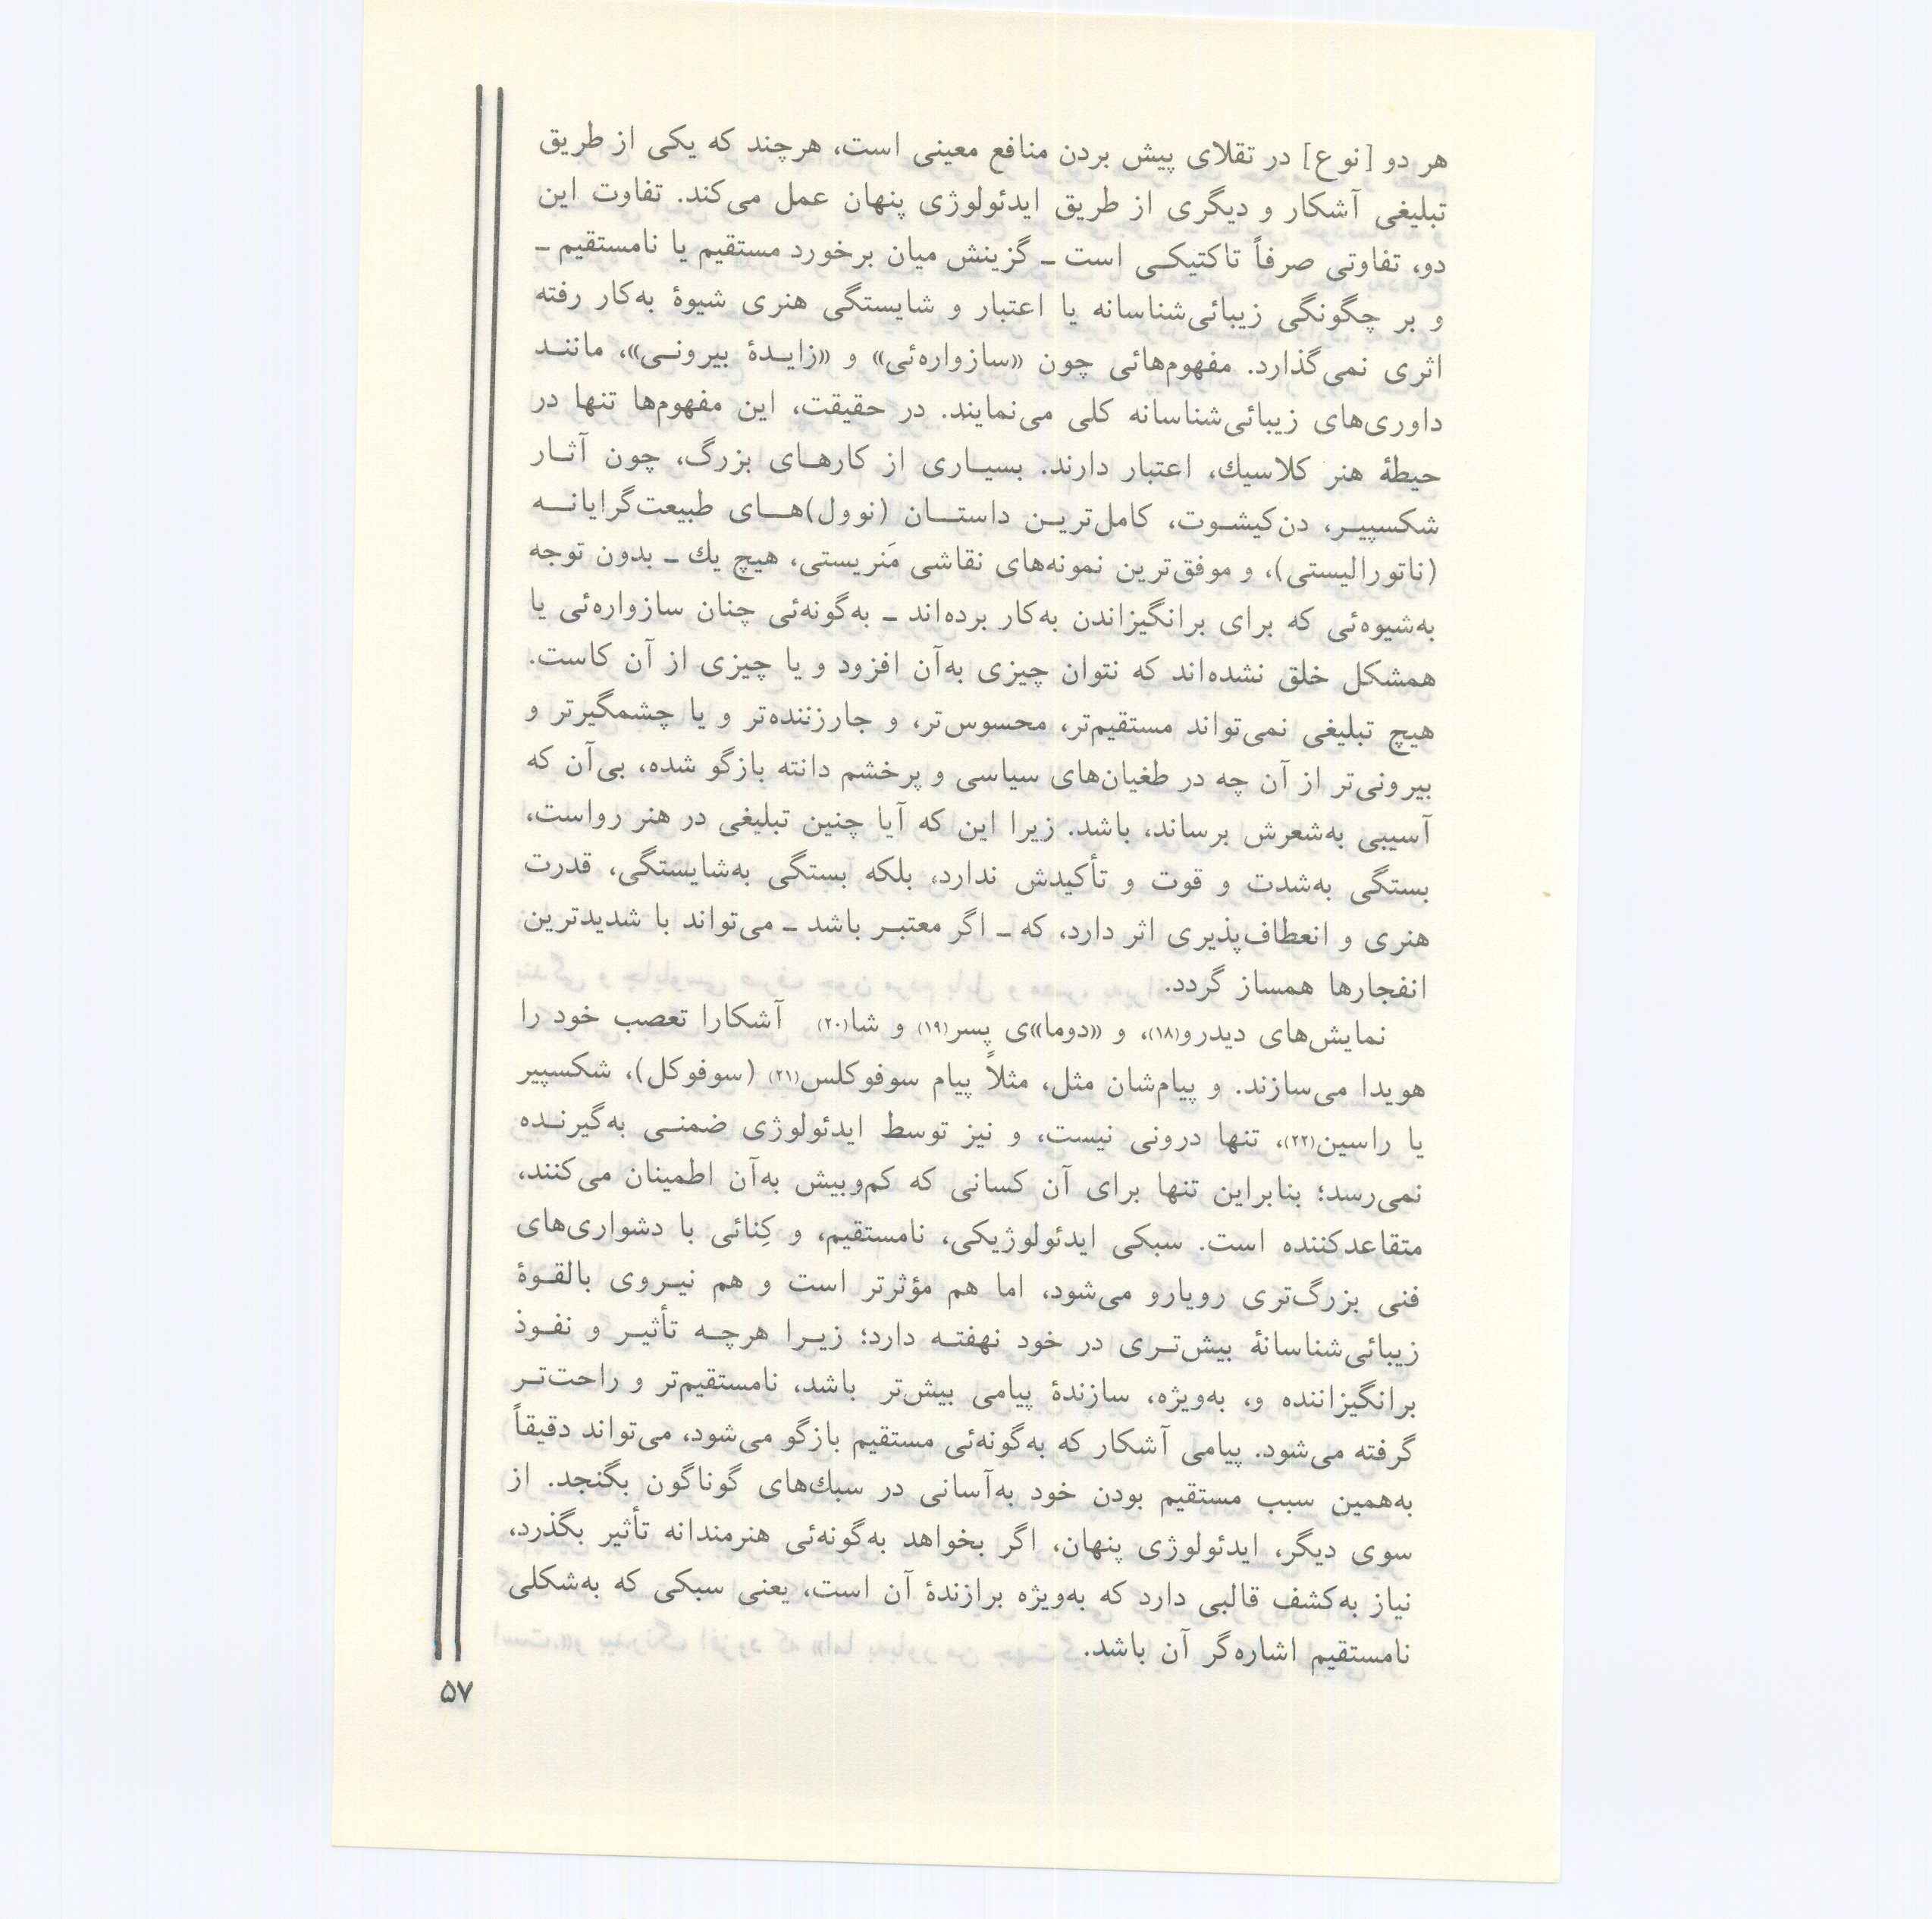 هر دو [نوع] در تقلای پیش بردن منافع معینی است، هرچند که یکی از طریق
تبلیغی آشکار و دیگری از طریق ایدئولوژی پنهان عمل می‌کند. تفاوت این
دو، تفاوتی صرفاً تاکتیکی است ـ گزینش میان برخورد مستقیم یا نامستقیم ـ
و بر چگونگی زیبائی‌شناسانه یا اعتبار و شایستگی هنری شیوۀ به‌کار رفته
اثری نمی‌گذارد. مفهوم‌هائی چون «سازواره‌ئی» و «زایدۀ بیرونی»، مانند
داوری‌های زیبائی‌شناسانه کلی می‌نمایند. در حقیقت، این مفهوم‌ها تنها در
حیطۀ هنر کلاسیك، اعتبار دارند. بسیاری از کارهای بزرگ، چون آثار
شکسپیر، دن‌کیشوت، کامل‌ترین داستان (نوول)های طبیعت‌گرایانه
(ناتورالیستی)، و موفق‌ترین نمونه‌های نقاشی مَنریستی، هیچ یك ـ بدون توجه
به‌شیوه‌ئی که برای برانگیزاندن به‌کار برده‌اند ـ به‌گونه‌ئی چنان سازواره‌ئی یا
همشکل خلق نشده‌اند که نتوان چیزی به‌آن افزود و یا چیزی از آن کاست.
هیچ تبلیغی نمی‌تواند مستقیم‌تر، محسوس‌تر، و جارزننده‌تر و یا چشمگیرتر و
بیرونی‌تر از آن چه در طغیان‌های سیاسی و پرخشم دانته بازگو شده، بی‌آن که
آسیبی به‌شعرش برساند، باشد. زیرا این که آیا چنین تبلیغی در هنر رواست،
بستگی به‌شدت و قوت و تأکیدش ندارد، بلکه بستگی به‌شایستگی، قدرت
هنری و انعطاف‌پذیری اثر دارد، که ـ اگر معتبر باشد ـ می‌تواند با شدیدترین
انفجارها همساز گردد.
نمایش‌های دیدرو(۱۸)، و «دوما»ی پسر(۱۹) و شا(۲۰) آشکارا تعصب خود را
هویدا می‌سازند. و پیام‌شان مثل، مثلاً پیام سوفوکلس(۲۱) (سوفوکل)، شکسپیر
یا راسین(۲۲)، تنها درونی نیست، و نیز توسط ایدئولوژی ضمنی به‌گیرنده
نمی‌رسد؛ بنابراین تنها برای آن کسانی که کم‌وبیش به‌آن اطمینان می‌کنند،
متقاعدکننده است. سبکی ایدئولوژیکی، نامستقیم، و کِنائی با دشواری‌های
فنی بزرگ‌تری رویارو می‌شود، اما هم مؤثرتر است و هم نیروی بالقوۀ
زیبائی‌شناسانۀ بیش‌تری در خود نهفته دارد؛ زیرا هرچه تأثیر و نفوذ
برانگیزاننده و، به‌ویژه، سازندۀ پیامی بیش‌تر باشد، نامستقیم‌تر و راحت‌تر
گرفته می‌شود. پیامی آشکار که به‌گونه‌ئی مستقیم بازگو می‌شود، می‌تواند دقیقاً
به‌همین سبب مستقیم بودن خود به‌آسانی در سبك‌های گوناگون بگنجد. از
سوی دیگر، ایدئولوژی پنهان، اگر بخواهد به‌گونه‌ئی هنرمندانه تأثیر بگذرد،
نیاز به‌کشف قالبی دارد که به‌ویژه برازندۀ آن است، یعنی سبکی که به‌شکلی
نامستقیم اشاره‌گر آن باشد.
۵۷